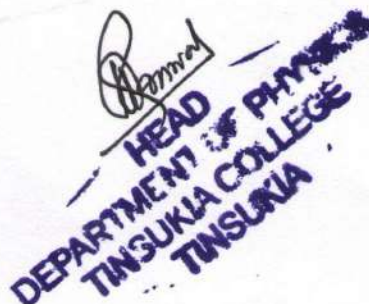 HEAD
DEPARTMENT OF PHYSICS
TINSUKIA COLLEGE
TINSUKIA